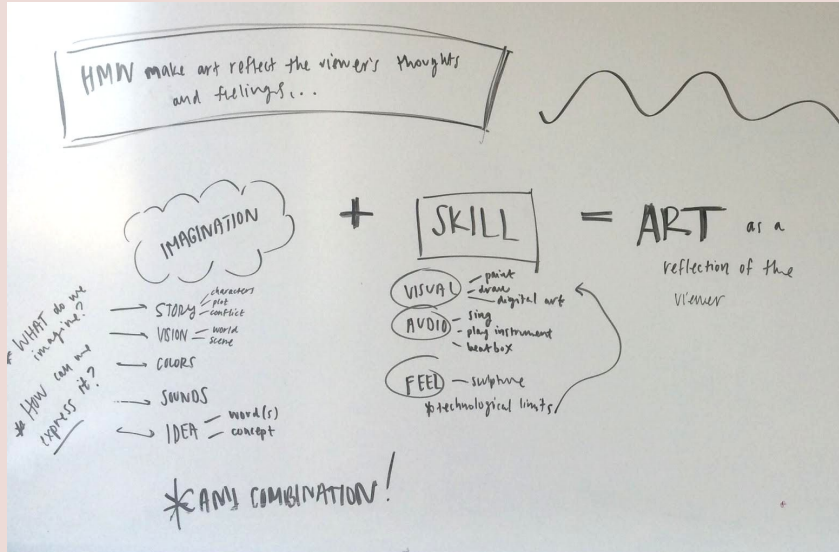 HMW make art reflect the viewer's thoughts
and feelings...
IMAGINATION
+
SKILL
=
ART as a
reflection of the
viewer
* WHAT do we
imagine?
* HOW can we
express it?
STORY
characters
plot
conflict
VISION
world
scene
COLORS
SOUNDS
IDEA
word(s)
concept
VISUAL
paint
draw
digital art
AUDIO
sing
play instrument
beatbox
FEEL
sculpture
*technological limits
*ANY COMBINATION!